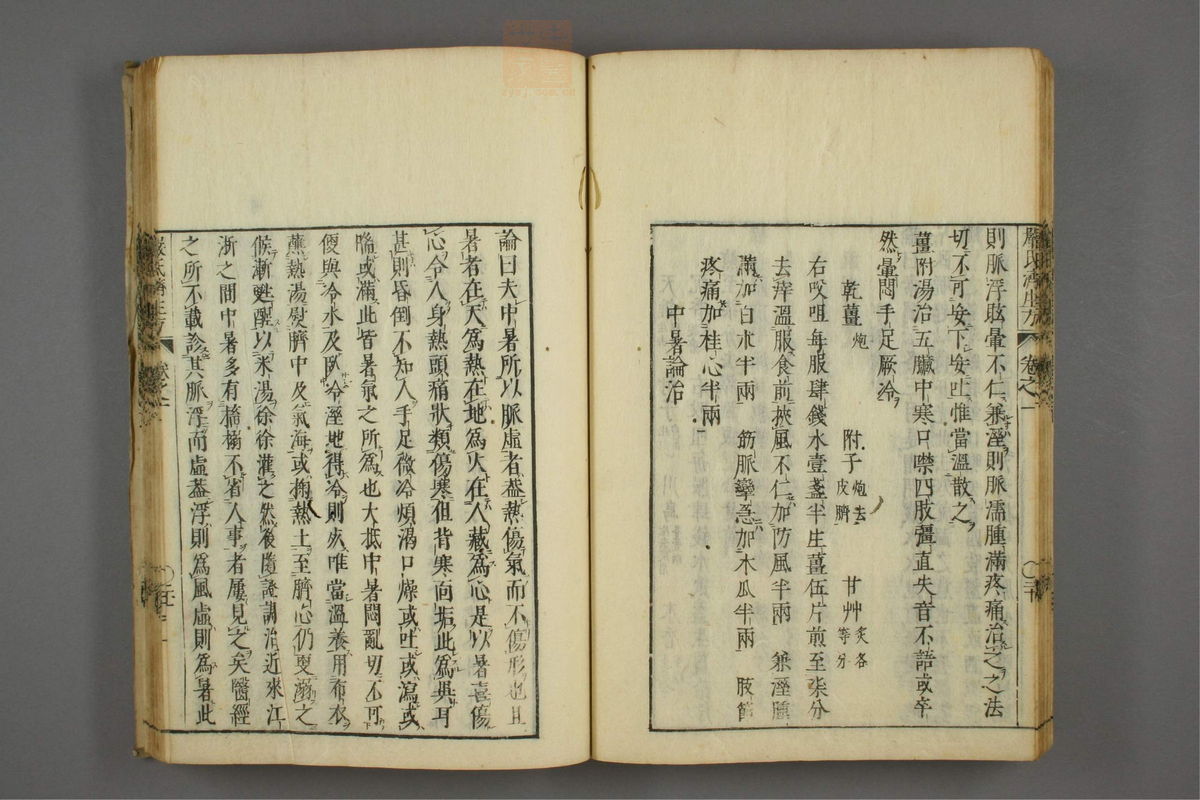 則脈浮眩暈不仁兼溼則脈濡腫滿疼痛治之之法
切不可妄下妄止惟當溫散之
薑附湯治五臟中寒口噤四肢彊直失音不語或卒
然暈悶手足厥冷
乾薑炮 附子炮去皮臍 甘艸炙各等分
右㕮咀每服肆錢水壹盞半生薑伍片煎至柒分
去滓溫服食前挾風不仁加防風半兩 兼溼腫
滿加白朮半兩 筋脈攣急加木瓜半兩 肢節
疼痛加桂心半兩
中暑論治
論曰夫中暑所以脈虛者葢熱傷氣而不傷形也且
暑者在天爲熱在地爲火在人藏爲心是以暑喜傷
心令人身熱頭痛狀類傷寒但背寒面垢此爲異耳
甚則昏倒不知人手足微冷煩渴口燥或吐或瀉或
喘或滿此皆暑氣之所爲也大抵中暑悶亂切不可
便與冷水及臥冷溼地得冷則死唯當溫養用布衣
蘸熱湯熨臍中及氣海或掬熱土至臍心仍更溺之
候漸甦醒以米湯徐徐灌之然後隨證調治近來江
浙之間中暑多有搐搦不省人事者屢見之矣醫經
之所不載診其脈浮而虛葢浮則爲風虛則爲暑此
嚴氏濟生方 卷之一